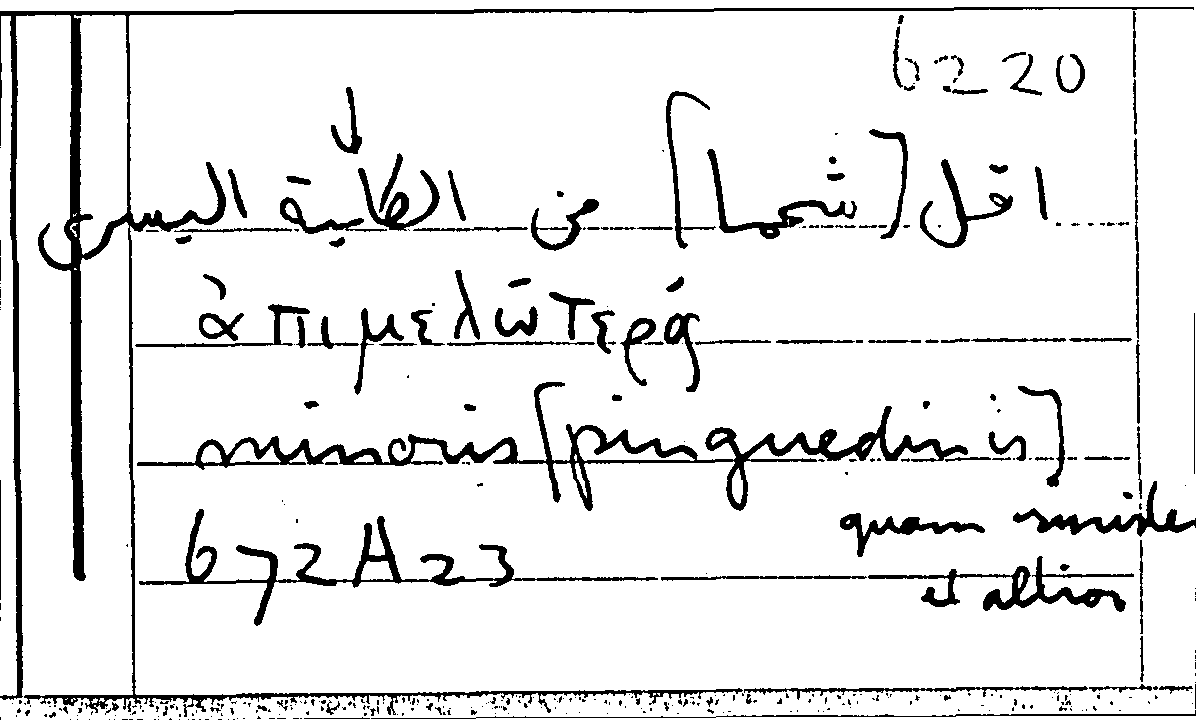 6220
اقل [شحما] من الكلية اليسرى
ἀπιμελώτερός
minoris [pinguedinis]
672A23 quam siniste
et altior